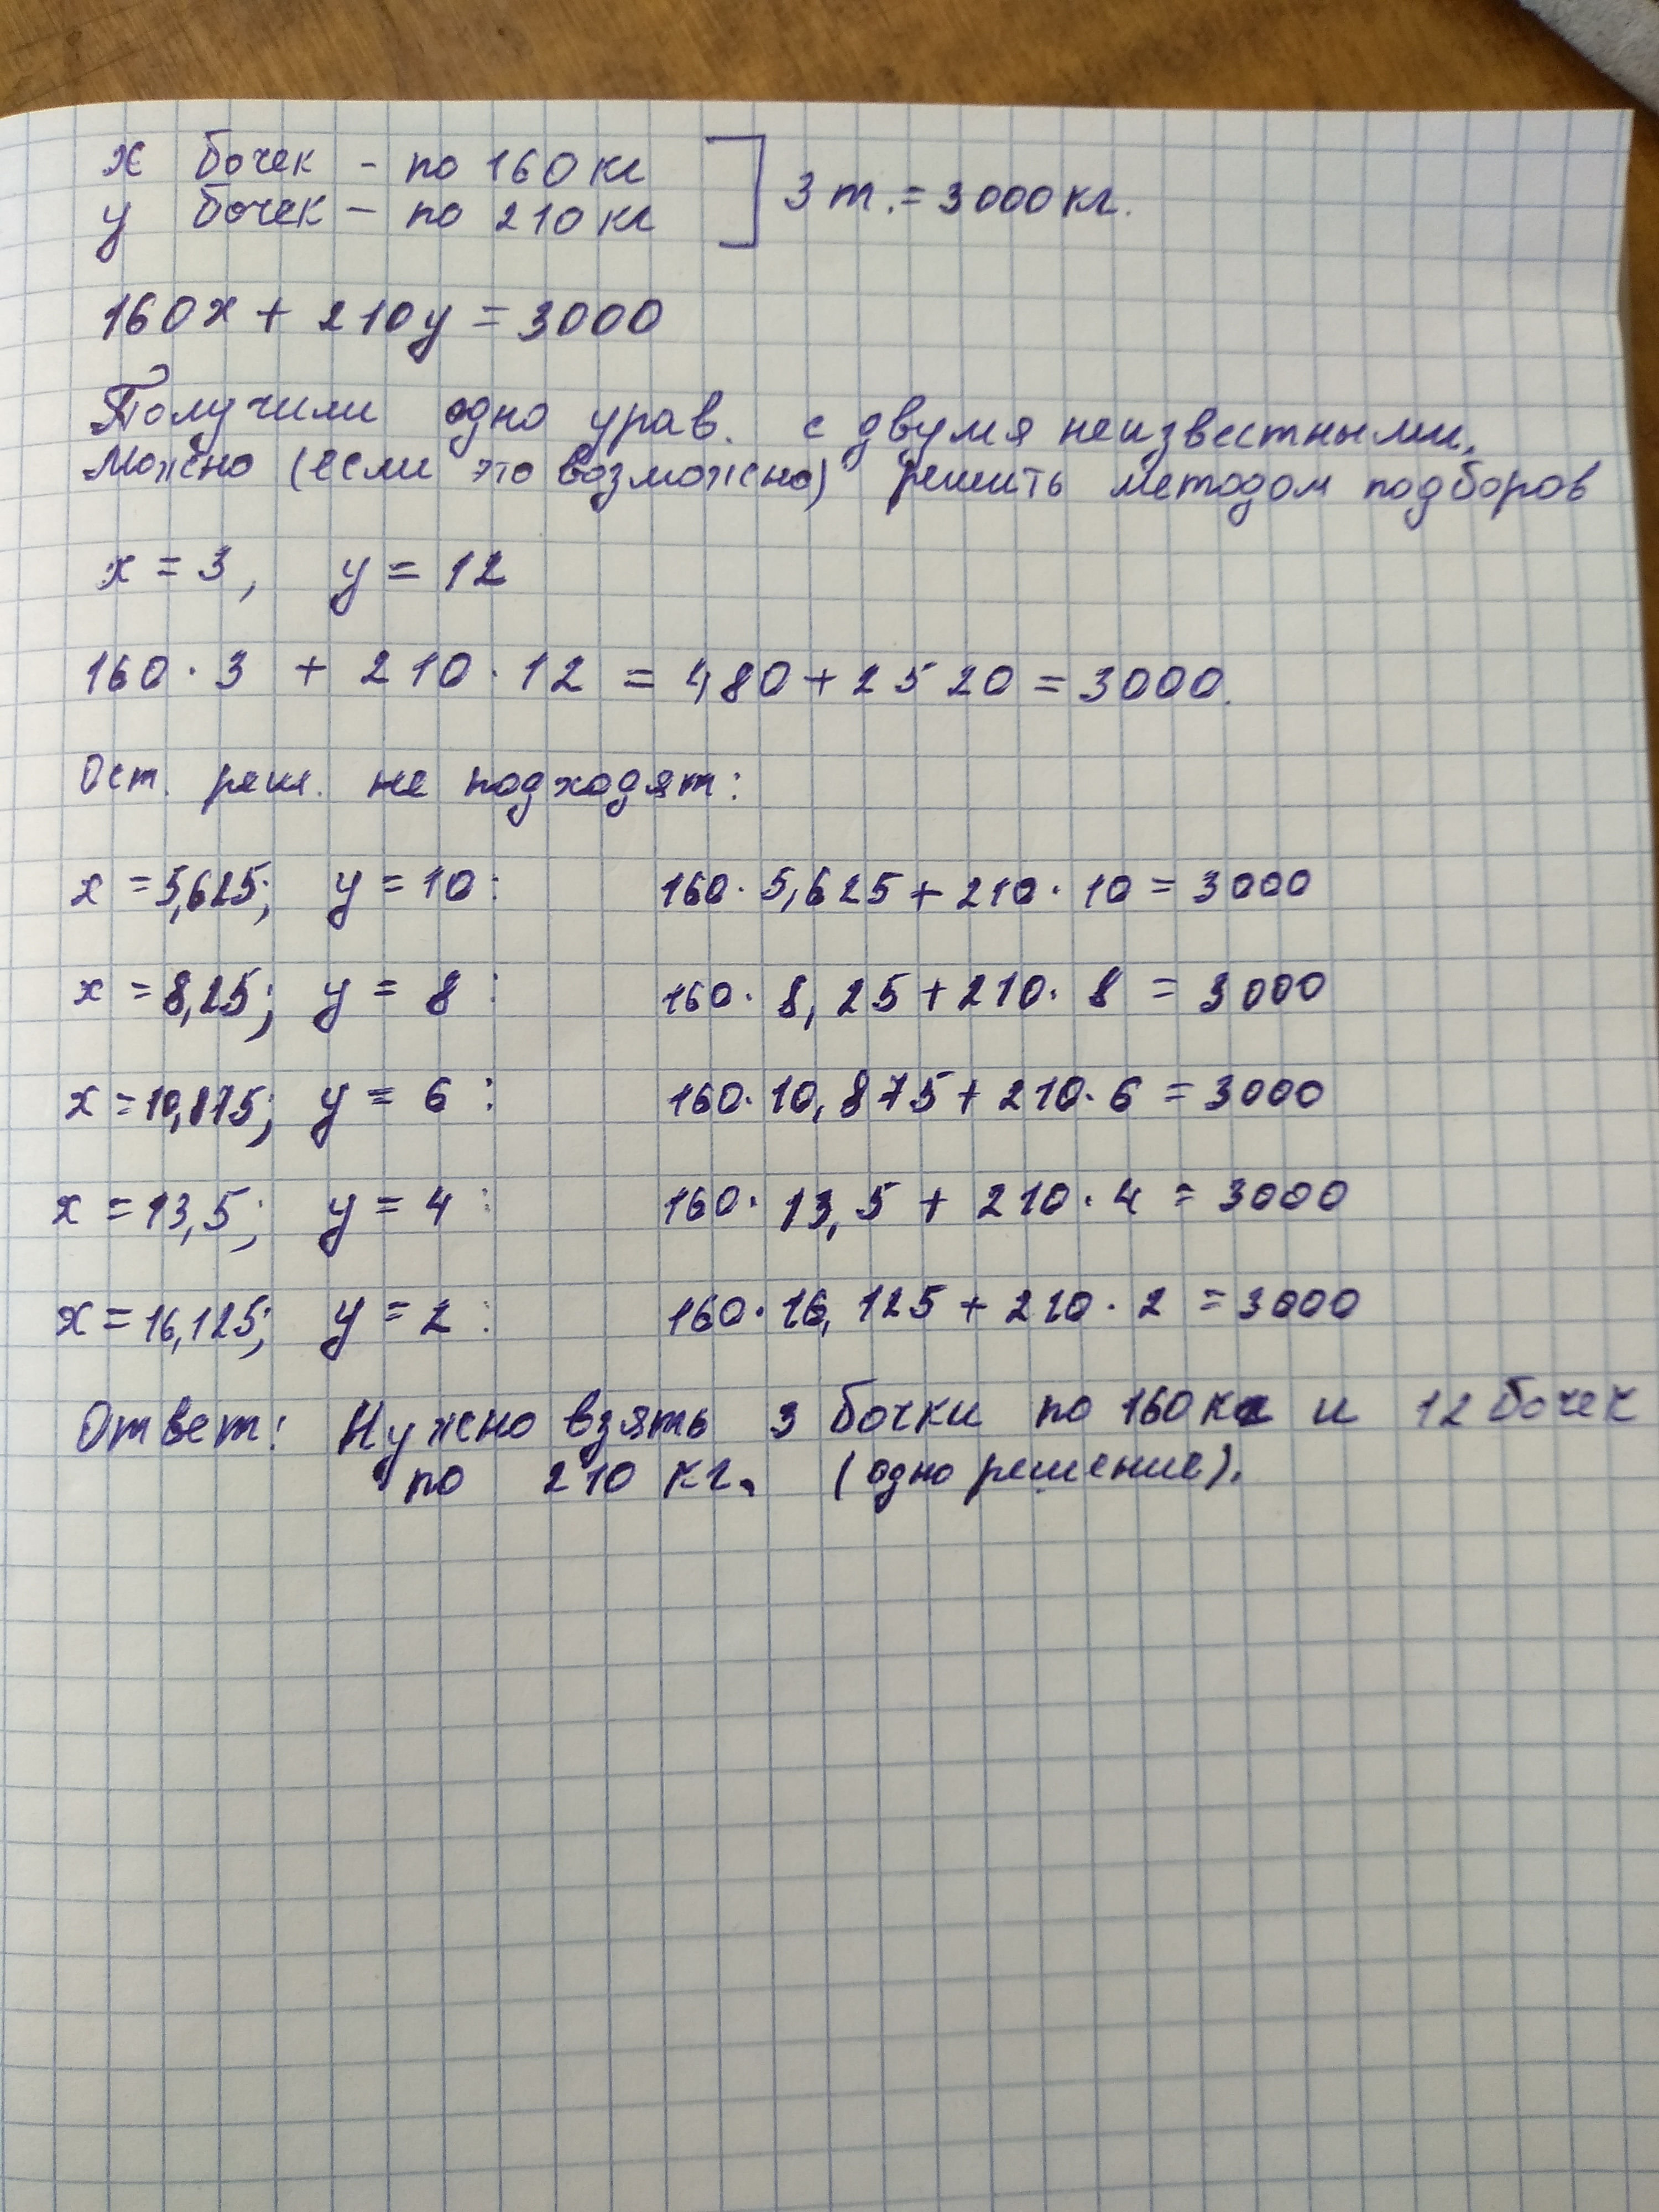 x бочек - по 160 кг
y бочек - по 210 кг
3 т. = 3000 кг.
160x + 210y = 3000
Получили одно урав. с двумя неизвестными.
Можно (если это возможно) решить методом подборов
x = 3, y = 12
160 · 3 + 210 · 12 = 480 + 2520 = 3000.
Ост. реш. не подходят:
x = 5,625; y = 10: 160 · 5,625 + 210 · 10 = 3000
x = 8,25; y = 8: 160 · 8,25 + 210 · 8 = 3000
x = 10,875; y = 6: 160 · 10,875 + 210 · 6 = 3000
x = 13,5; y = 4: 160 · 13,5 + 210 · 4 = 3000
x = 16,125; y = 2: 160 · 16,125 + 210 · 2 = 3000
Ответ: Нужно взять 3 бочки по 160 кг и 12 бочек
по 210 кг. (одно решение).